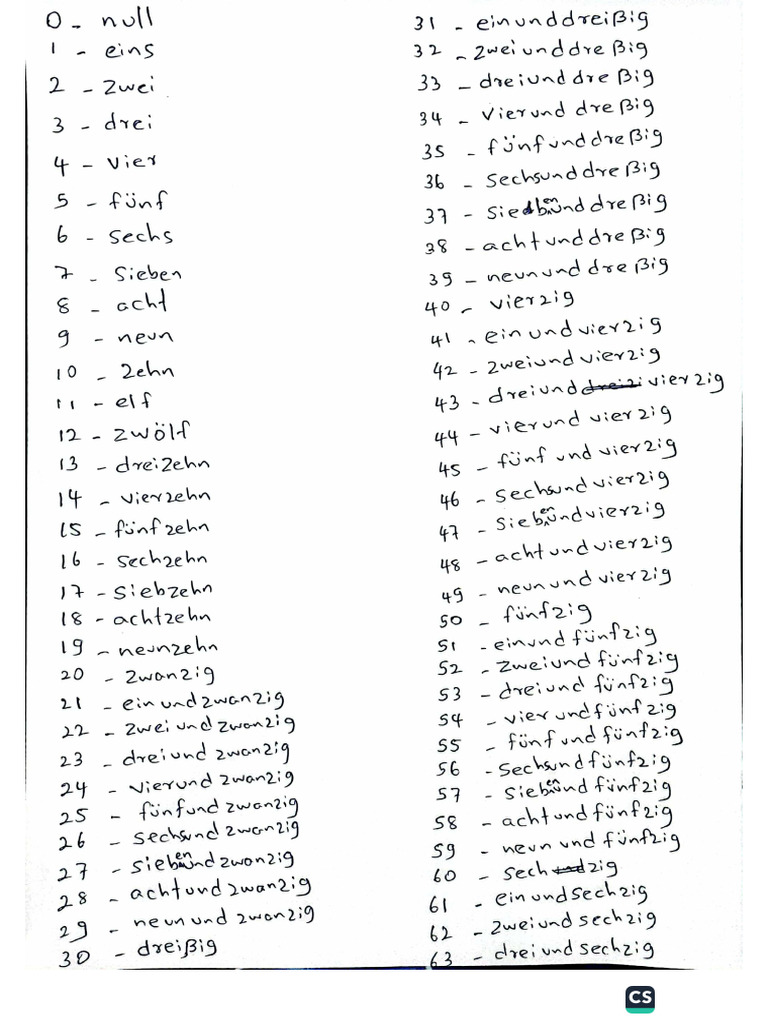 0 - null
1 - eins
2 - zwei
3 - drei
4 - vier
5 - fünf
6 - sechs
7 - sieben
8 - acht
9 - neun
10 - zehn
11 - elf
12 - zwölf
13 - dreizehn
14 - vierzehn
15 - fünfzehn
16 - sechzehn
17 - siebzehn
18 - achtzehn
19 - neunzehn
20 - zwanzig
21 - einundzwanzig
22 - zweiundzwanzig
23 - dreiundzwanzig
24 - vierundzwanzig
25 - fünfundzwanzig
26 - sechsundzwanzig
27 - siebenundzwanzig
28 - achtundzwanzig
29 - neunundzwanzig
30 - dreißig
31 - einunddreißig
32 - zweiunddreßig
33 - dreiunddreßig
34 - vierunddreßig
35 - fünfunddreßig
36 - sechsunddreßig
37 - siebenunddreßig
38 - achtunddreßig
39 - neununddreßig
40 - vierzig
41 - einundvierzig
42 - zweiundvierzig
43 - dreiundvierzig
44 - vierundvierzig
45 - fünfundvierzig
46 - sechsundvierzig
47 - siebenundvierzig
48 - achtundvierzig
49 - neunundvierzig
50 - fünfzig
51 - einundfünfzig
52 - zweiundfünfzig
53 - dreiundfünfzig
54 - vierundfünfzig
55 - fünfundfünfzig
56 - sechsundfünfzig
57 - siebenundfünfzig
58 - achtundfünfzig
59 - neunundfünfzig
60 - sechzig
61 - einundsechzig
62 - zweiundsechzig
63 - dreiundsechzig
CS